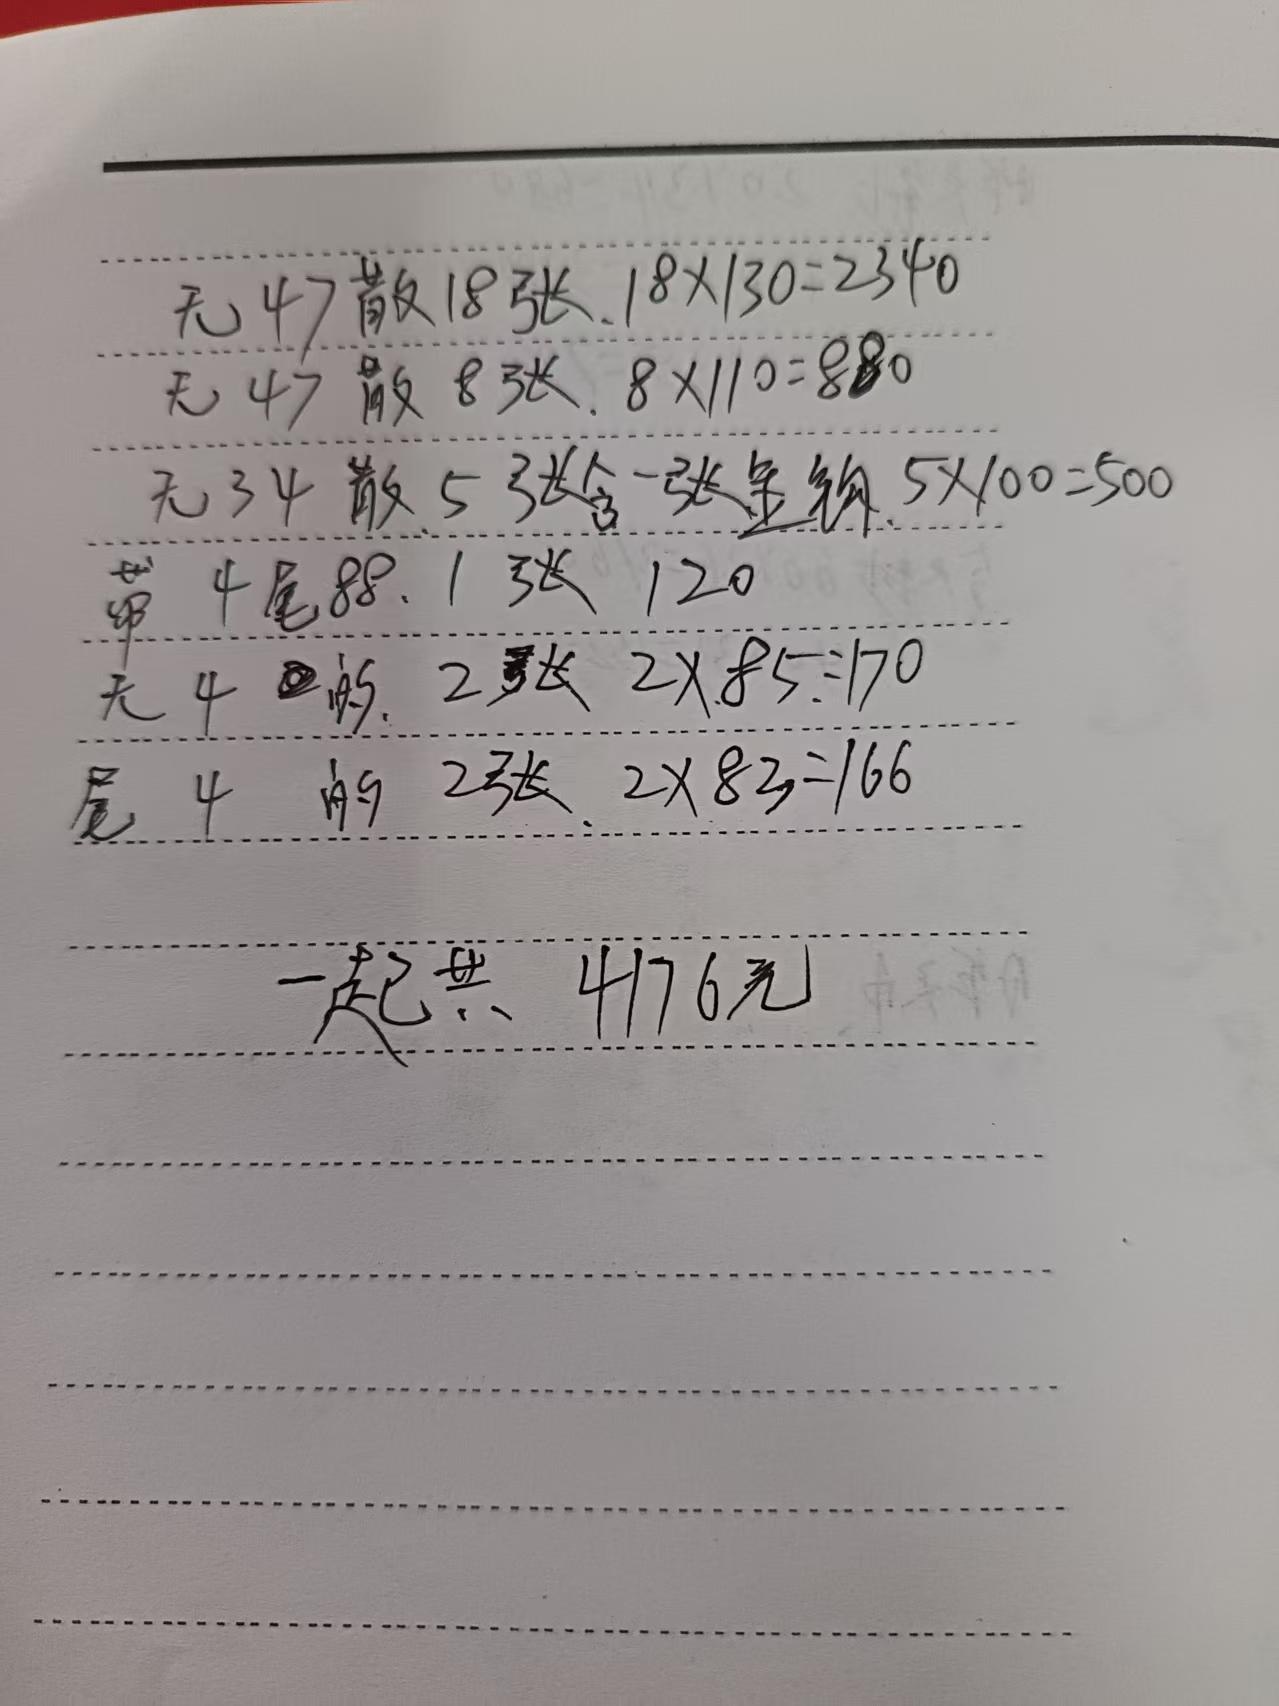 无47散18张.18×130=2340
无47散8张.8×110=880
无34散.5张含一张金钩.5×100=500
带4尾88.1张120
无4的.2张2×85=170
尾4的2张.2×83=166
一起共4176元